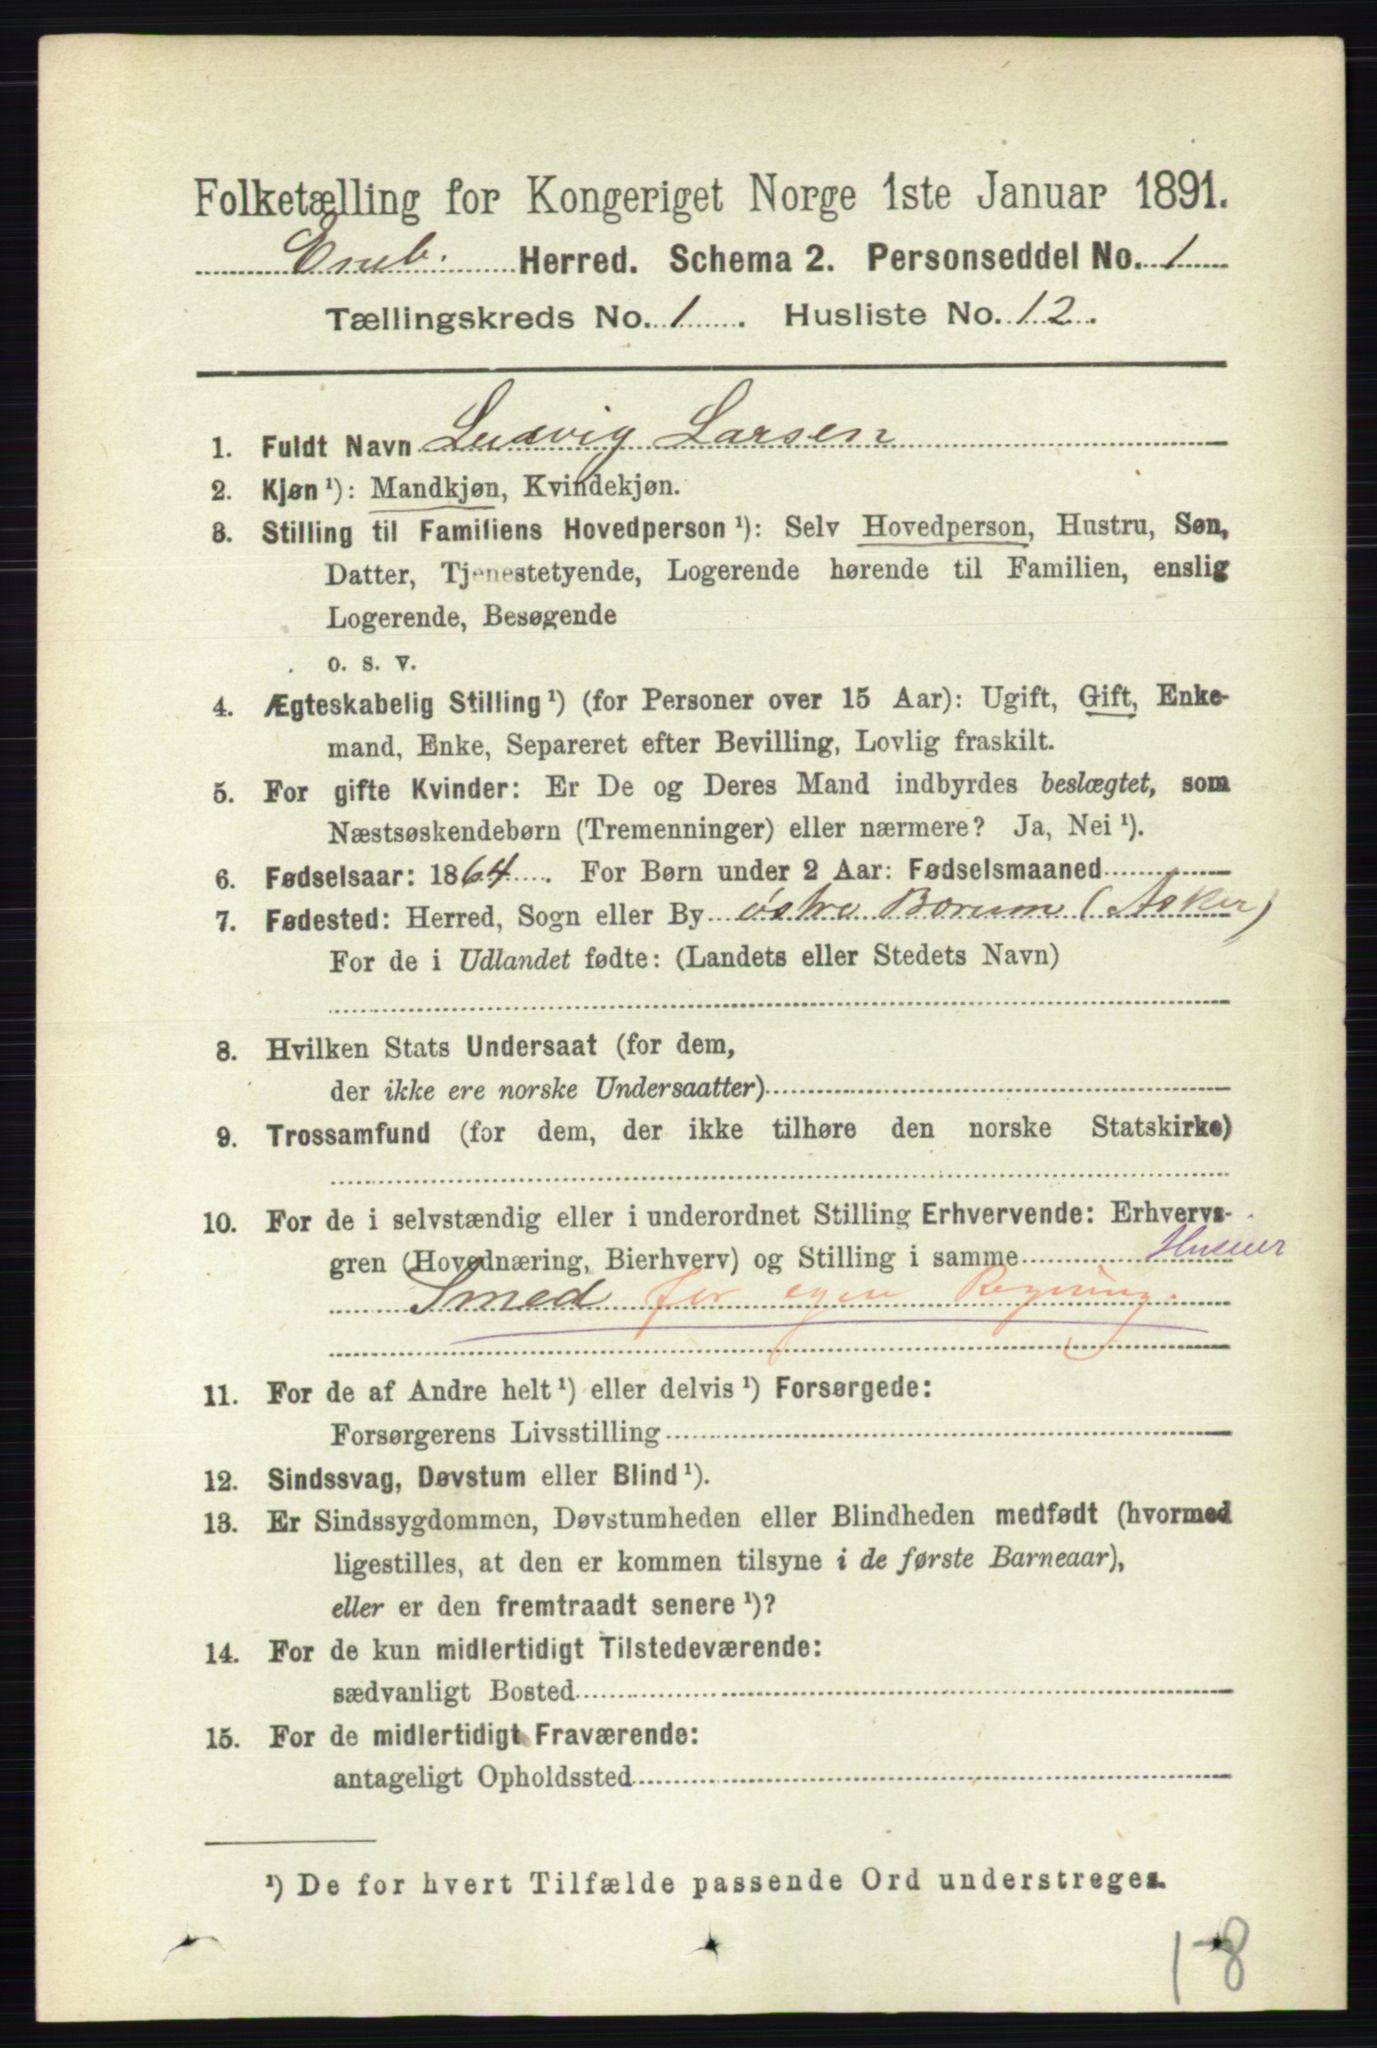 Folketælling for Kongeriget Norge 1ste Januar 1891.
Eneb. Herred. Schema 2. Personseddel No. 1
Tællingskreds No. 1. Husliste No. 12.
1. Fuldt Navn Ludvig Larsen
2. Kjøn ¹): Mandkjøn, Kvindekjøn.
3. Stilling til Familiens Hovedperson ¹): Selv Hovedperson, Hustru, Søn,
Datter, Tjenestetyende, Logerende hørende til Familien, enslig
Logerende, Besøgende
o. s. v.
4. Ægteskabelig Stilling ¹) (for Personer over 15 Aar): Ugift, Gift, Enke-
mand, Enke, Separeret efter Bevilling, Lovlig fraskilt.
5. For gifte Kvinder: Er De og Deres Mand indbyrdes beslægtet, som
Næstsøskendebørn (Tremenninger) eller nærmere? Ja, Nei ¹).
6. Fødselsaar: 1864. For Børn under 2 Aar: Fødselsmaaned
7. Fødested: Herred, Sogn eller By østre Borum (Asker)
For de i Udlandet fødte: (Landets eller Stedets Navn)
8. Hvilken Stats Undersaat (for dem,
der ikke ere norske Undersaatter)
9. Trossamfund (for dem, der ikke tilhøre den norske Statskirke)
10. For de i selvstændig eller i underordnet Stilling Erhvervende: Erhvervs-
gren (Hovednæring, Bierhverv) og Stilling i samme Huseier
Smed for egen Regning.
11. For de af Andre helt ¹) eller delvis ¹) Forsørgede:
Forsørgerens Livsstilling
12. Sindssvag, Døvstum eller Blind ¹).
13. Er Sindssygdommen, Døvstumheden eller Blindheden medfødt (hvormed
ligestilles, at den er kommen tilsyne i de første Barneaar),
eller er den fremtraadt senere ¹)?
14. For de kun midlertidigt Tilstedeværende:
sædvanligt Bosted
15. For de midlertidigt Fraværende:
antageligt Opholdssted
¹) De for hvert Tilfælde passende Ord understreges.
1-8